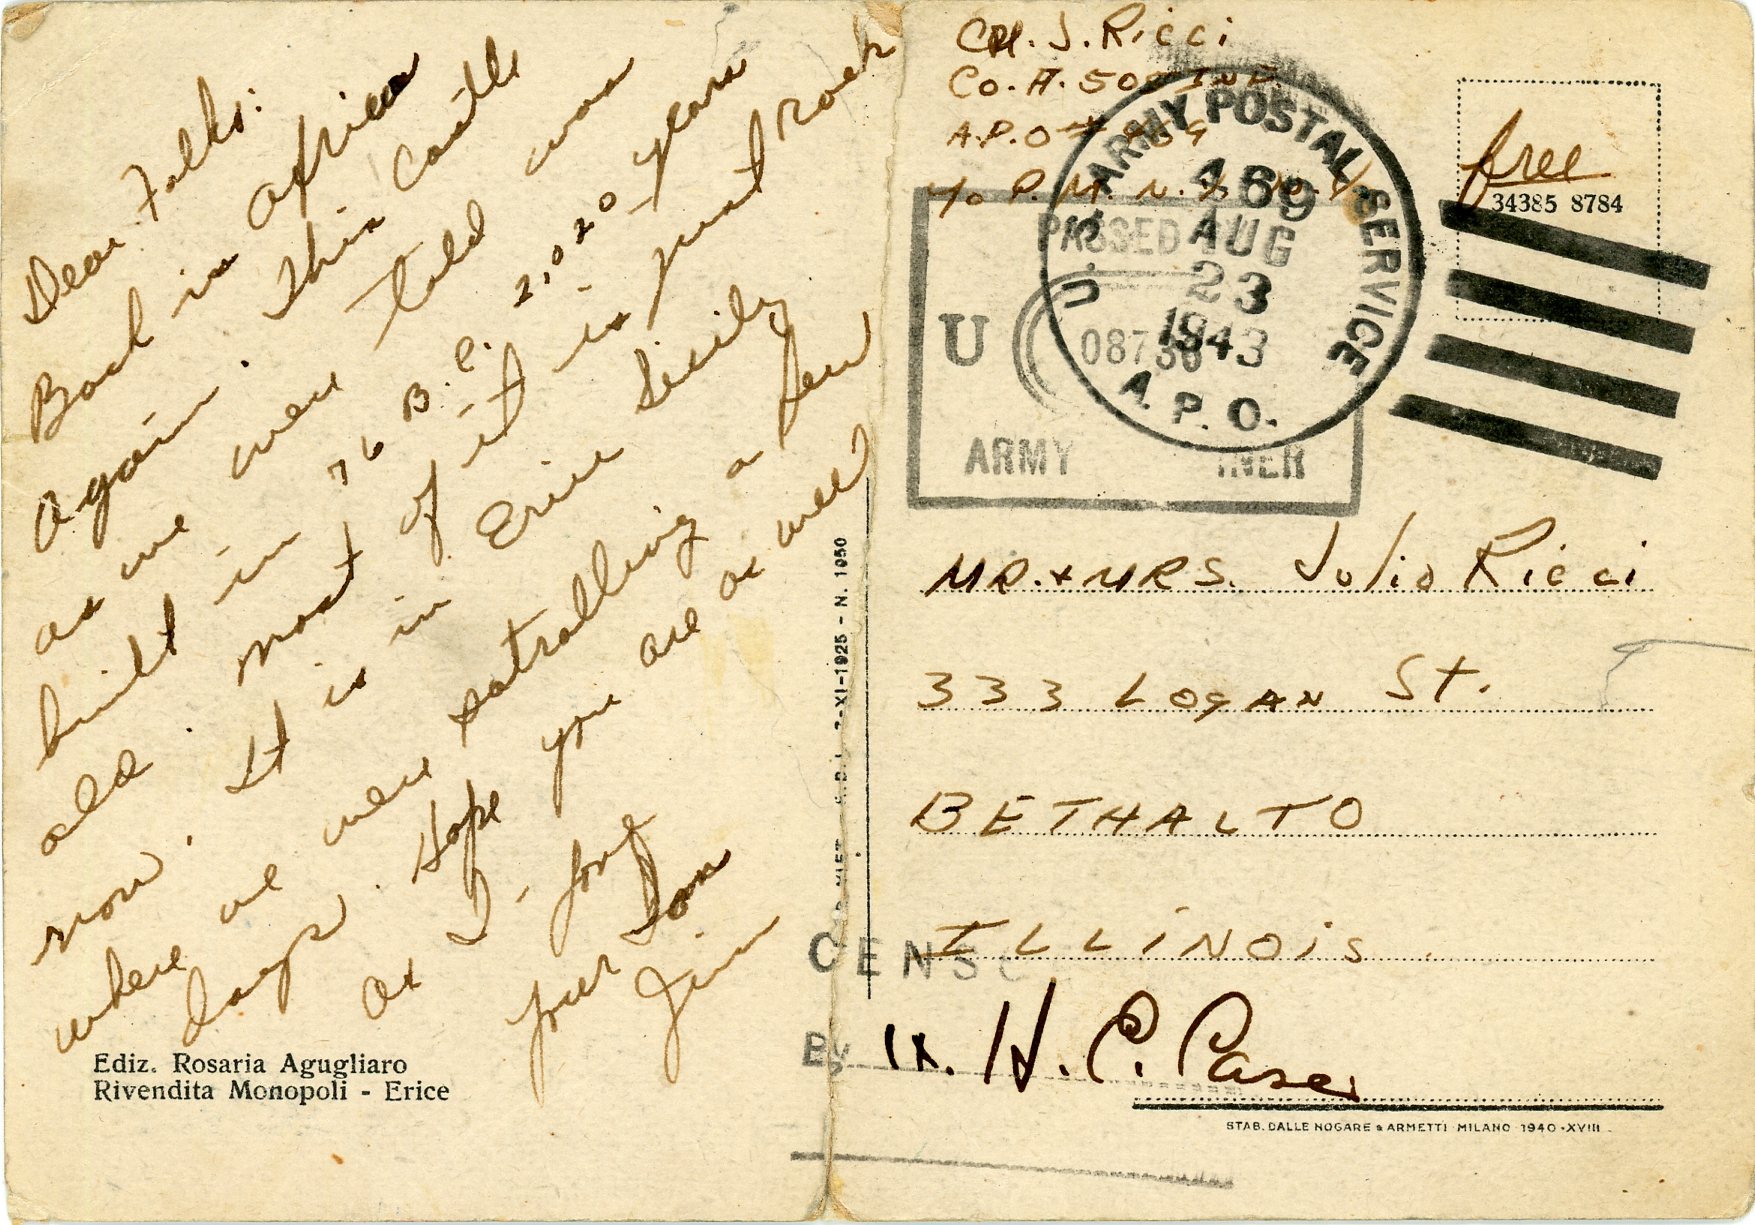 Dear Folks:
Back in africa
again. This Castle
as we were told was
built in 76 B.C. 2,020 years
old. most of it is just rock
now. It is in Erice Sicily
where we were patrolling a few
days. Hope you are as well
as I - forg
Your Son
Jim
Ediz. Rosaria Agugliaro
Rivendita Monopoli - Erice
A.D.L. 7-XI-1925 - N. 1050
Cpl. J. Ricci
Co. A. INF.
A.P.O # 469
c/o P.M. N.Y. N.Y.
free
34385 8784
U.S. ARMY POSTAL SERVICE
469
AUG
23
1943
A.P.O.
PASSED
U
ARMY
MR. + MRS. Julio Ricci
333 LOGAN St.
BETHALTO
ILLINOIS.
CENS
By Lt. H. C. Case
STAB. DALLE NOGARE & ARMETTI MILANO 1940-XVIII